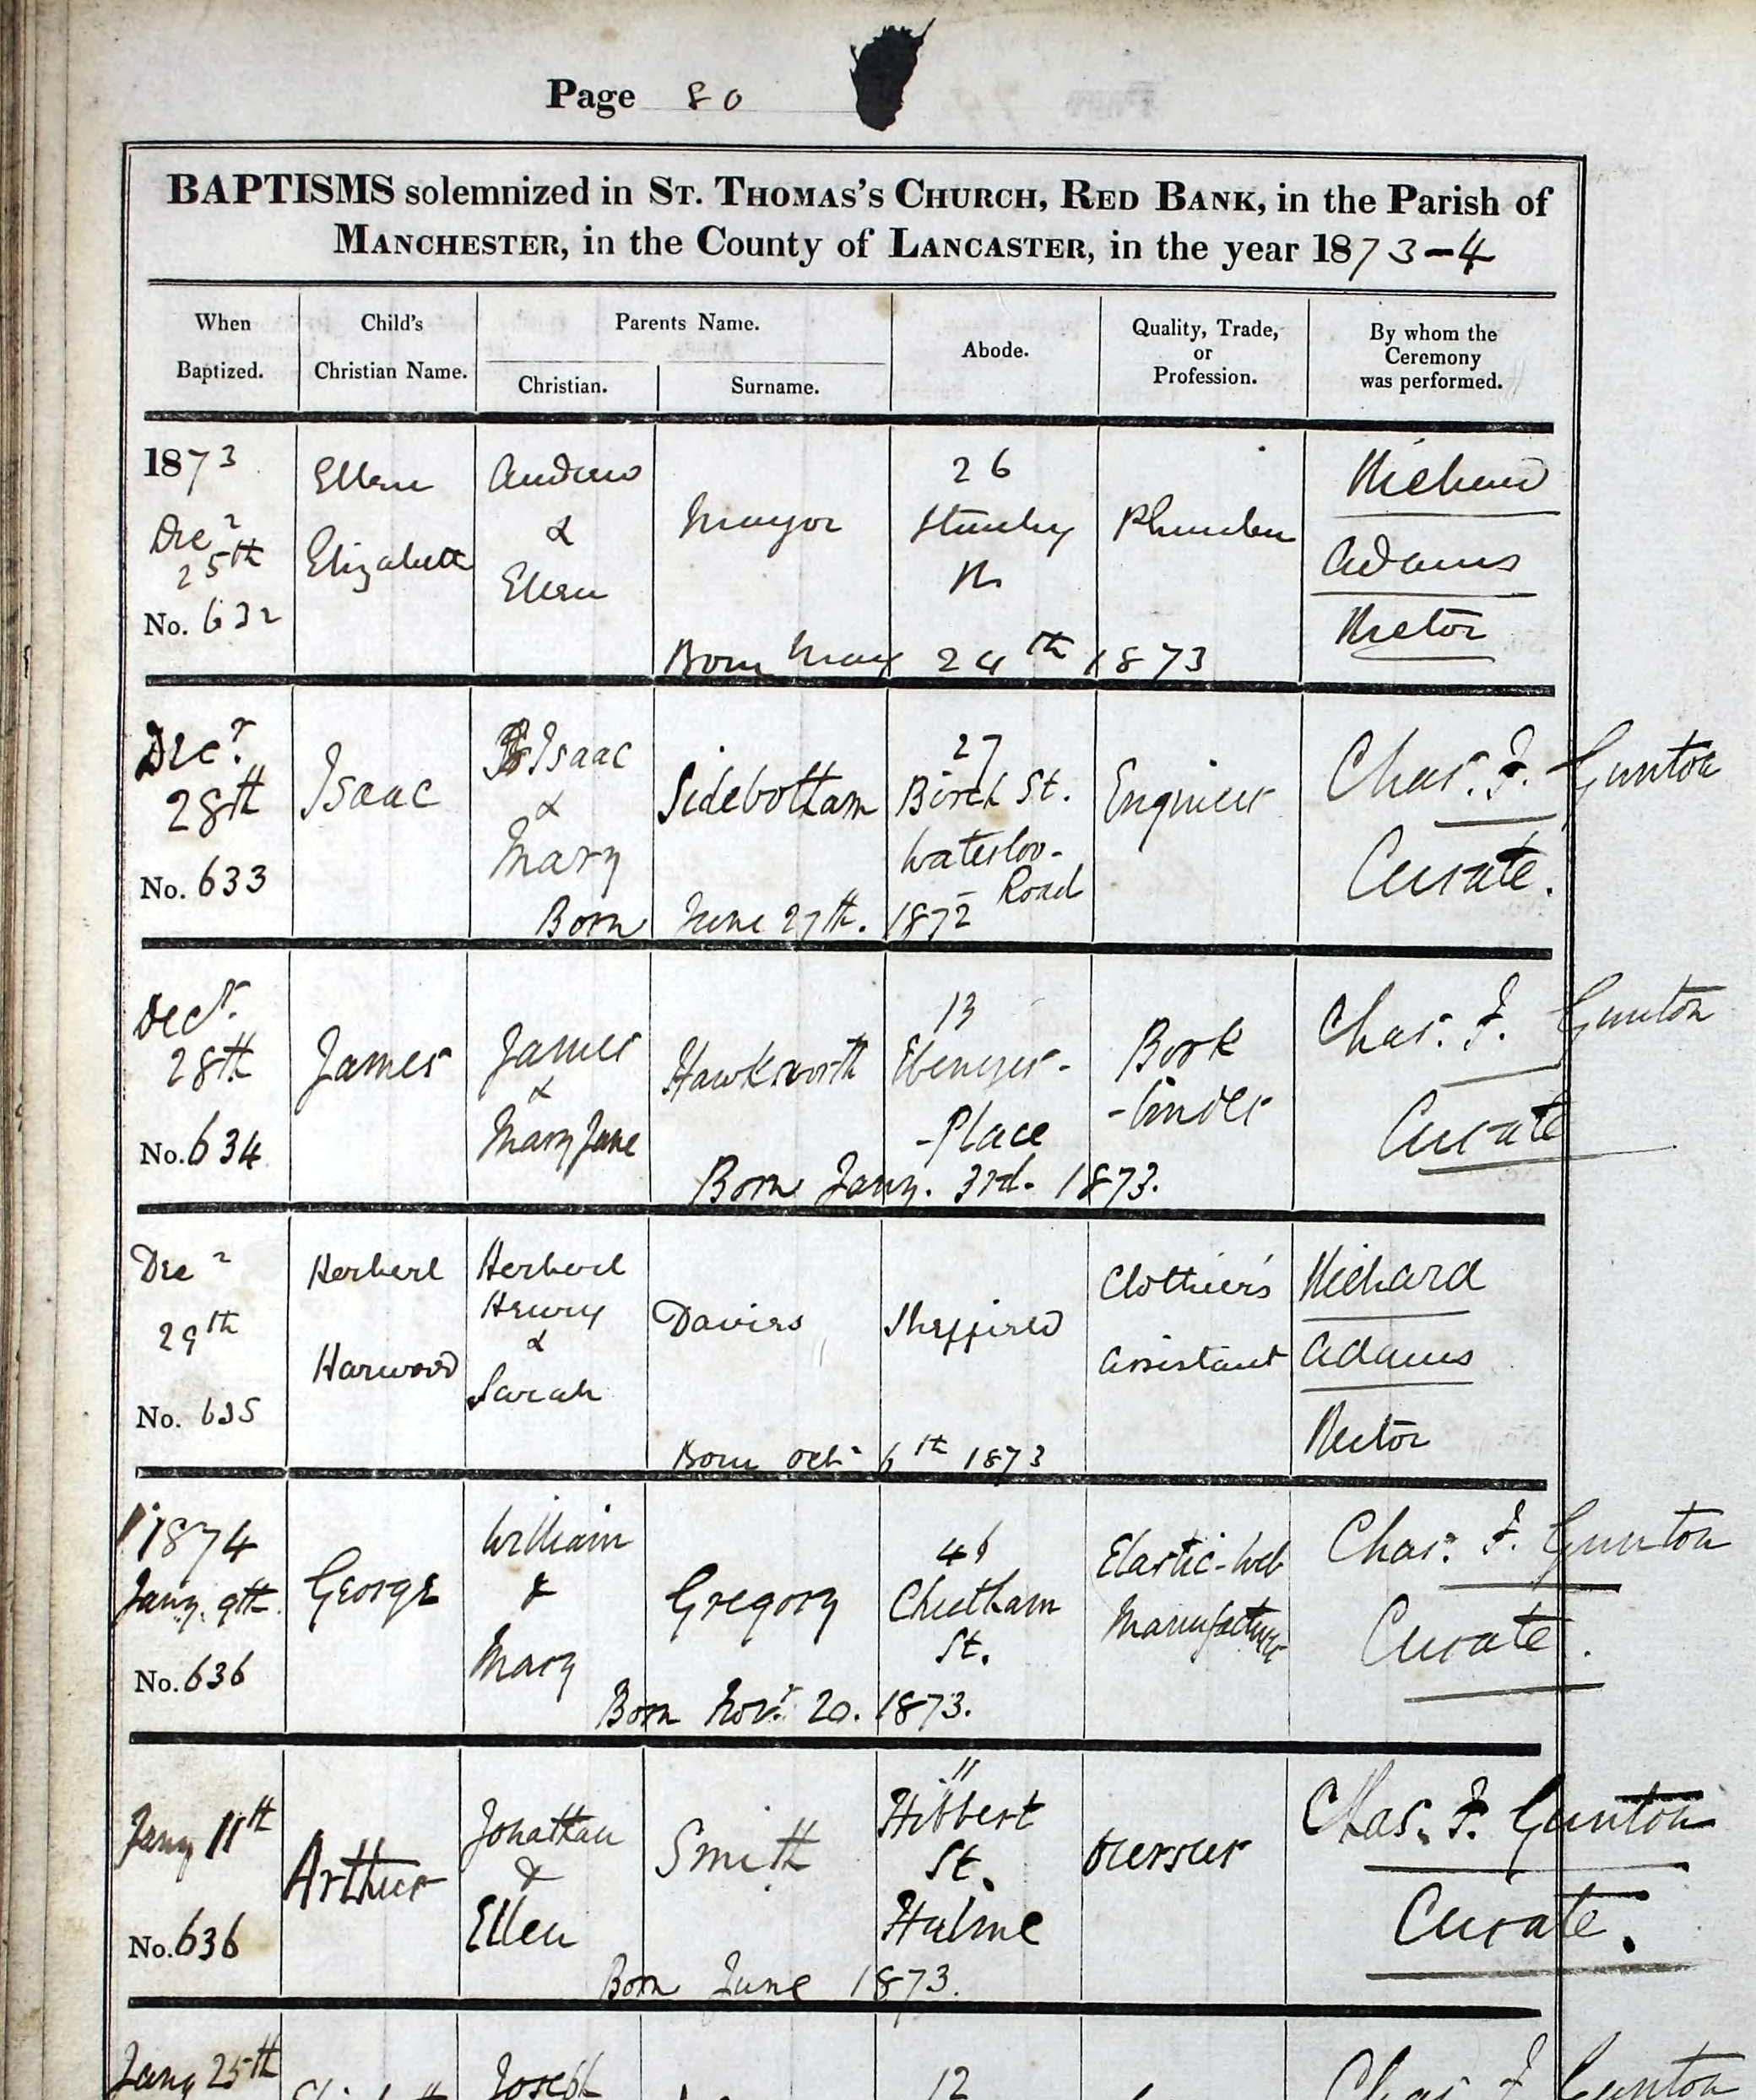 Page 80
BAPTISMS solemnized in ST. THOMAS'S CHURCH, RED BANK, in the Parish of
MANCHESTER, in the County of LANCASTER, in the year 1873-4
When
Baptized.
Child's
Christian Name.
Parents Name.
Christian.
Surname.
Abode.
Quality, Trade,
or
Profession.
By whom the
Ceremony
was performed.
1873
Decr
25th
No. 632
Ellen
Elizabeth
Andrew
&
Ellen
Mayor
26
Stanley
St
Plumber
Richard
Adams
Rector
Born May 24th 1873
Decr.
28th
No. 633
Isaac
Isaac
&
Mary
Sidebottam
27
Birch St.
Waterloo-
- Road
Engineer
Chas. F. Gunton
Curate.
Born June 27th. 1872
Decr.
28th
No. 634
James
James
&
Mary Jane
Hawksworth
13
Ebenezer-
-Place
Book
-binder
Chas. F. Gunton
Curate
Born Jany. 3rd. 1873.
Decr
29th
No. 635
Herbert
Harwood
Herbert
Henry
&
Sarah
Davies
Sheffield
Clothier's
Assistant
Richard
Adams
Rector
Born Octr 6th 1873
1874
Jany. 9th.
No. 636
George
William
&
Mary
Gregory
46
Cheetham
St.
Elastic-Web
Manufacturer
Chas. F. Gunton
Curate.
Born Novr. 20. 1873.
Jany 11th
No. 636
Arthur
Jonathan
&
Ellen
Smith
11
Hibbert
St.
Hulme
Overseer
Chas. F. Gunton
Curate.
Born June 1873.
Jany 25th
Joseph
12
Chas. F. Gunton